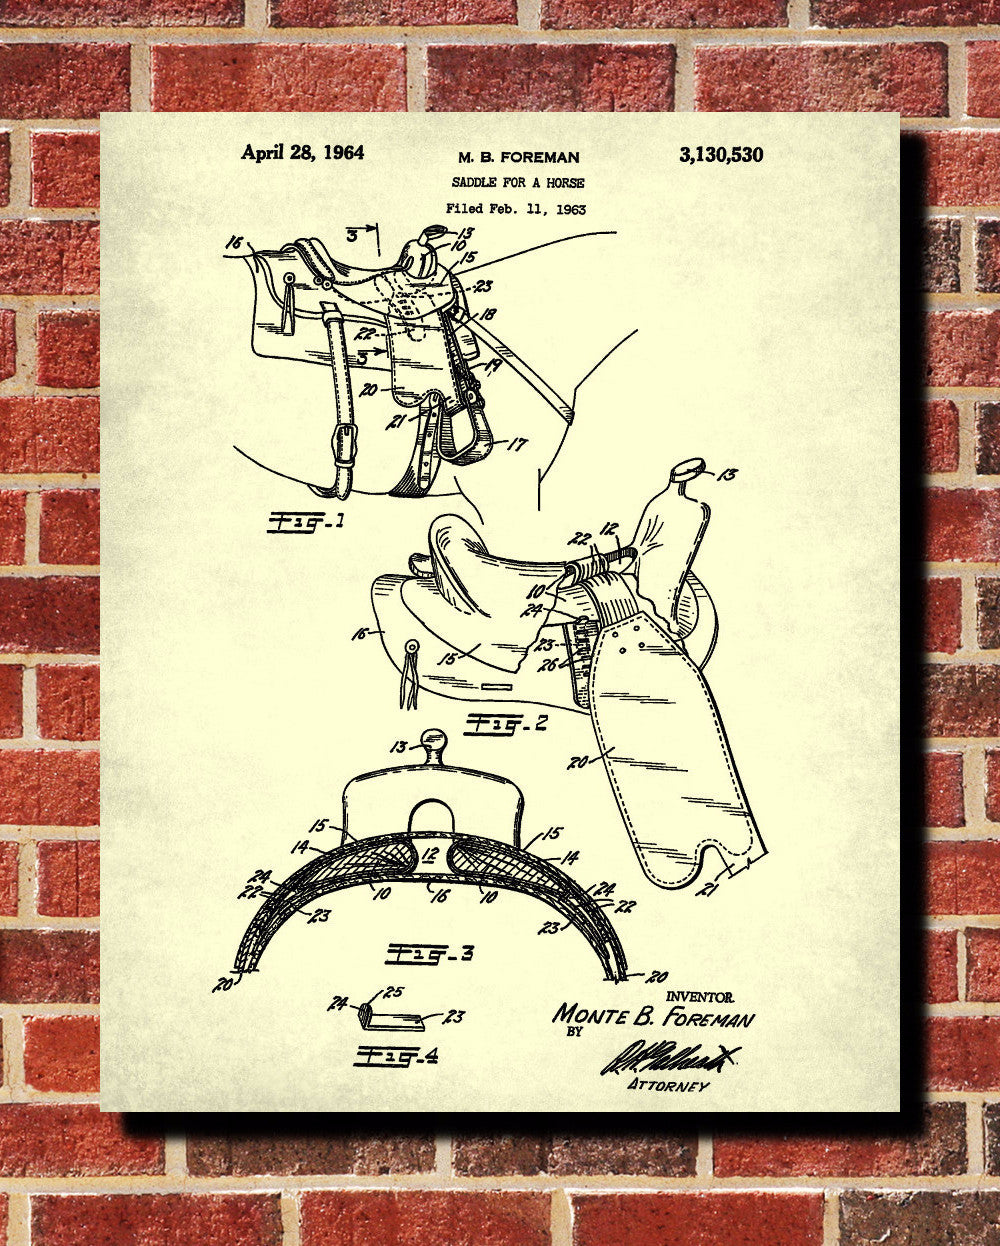 April 28, 1964
M. B. FOREMAN
3,130,530
SADDLE FOR A HORSE
Filed Feb. 11, 1963
13
3
16
10
15
23
18
22
3
19
20
21
17
Fig-1
13
22
12
10
24
16
15
23
26
Fig-2
20
21
13
15
15
14
12
14
24
22
10
16
10
24
22
23
23
20
20
Fig-3
25
24
23
Fig-4
INVENTOR
MONTE B. FOREMAN
BY
ATTORNEY